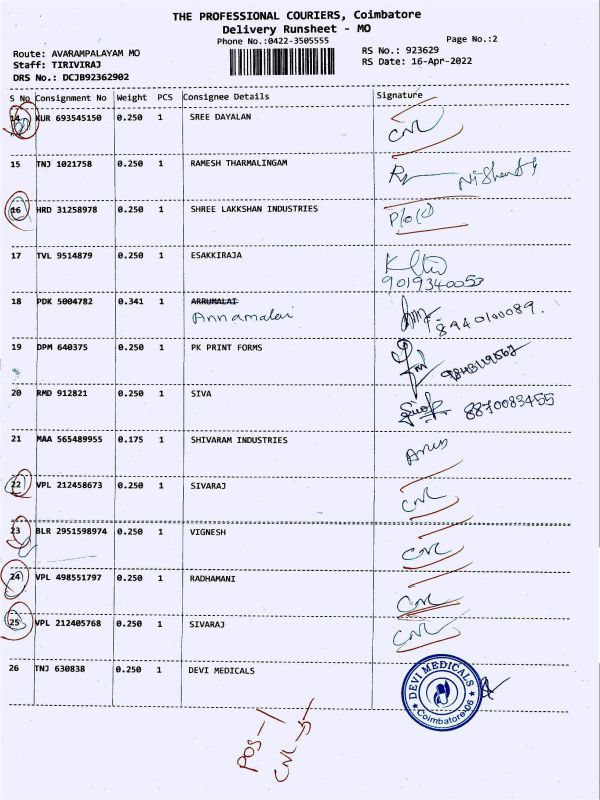 THE PROFESSIONAL COURIERS, Coimbatore
Delivery Runsheet - MO
Phone No.:0422-3505555
Page No.:2
Route: AVARAMPALAYAM MO
RS No.: 923629
Staff: TIRIVIRAJ
RS Date: 16-Apr-2022
DRS No.: DCJB92362902
S No Consignment No Weight PCS Consignee Details Signature
14 KUR 693545150 0.250 1 SREE DAYALAN CNL
15 TNJ 1021758 0.250 1 RAMESH THARMALINGAM
16 HRD 31258978 0.250 1 SHREE LAKKSHAN INDUSTRIES
17 TVL 9514879 0.250 1 ESAKKIRAJA
9019340053
18 PDK 5004782 0.341 1 ARRUMALAI
Annamalai
8940100089.
19 DPM 640375 0.250 1 PK PRINT FORMS
20 RMD 912821 0.250 1 SIVA 8870083455
21 MAA 565489955 0.175 1 SHIVARAM INDUSTRIES
22 VPL 212458673 0.250 1 SIVARAJ CNL
23 BLR 2951598974 0.250 1 VIGNESH CNL
24 VPL 498551797 0.250 1 RADHAMANI CNL
25 VPL 212405768 0.250 1 SIVARAJ CNL
26 TNJ 630838 0.250 1 DEVI MEDICALS
DEVI MEDICALS
Coimbatore-06
CNL-5